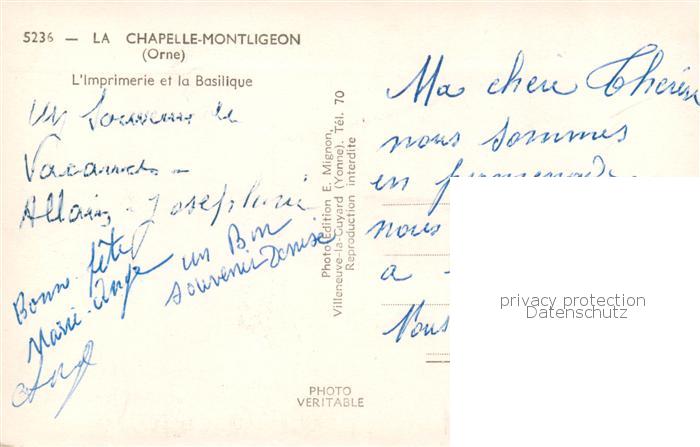 5236 — LA CHAPELLE-MONTLIGEON
(Orne)
L'Imprimerie et la Basilique
Un Souvenir de
Vacances -
Allain Josephine
Bonne fête
Marie-Ange
un Bon
souvenir Denise
Photo Edition E. Mignon,
Villeneuve-la-Guyard (Yonne). Tél. 70
Reproduction interdite
Ma chère Thérèse
nous sommes
en promenade
nous
a
Nous
privacy protection
Datenschutz
PHOTO
VERITABLE